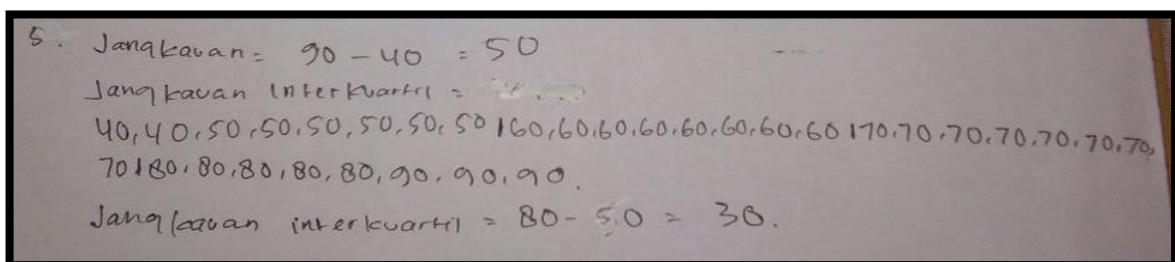 5. Jangkauan = 90 - 40 = 50
Jangkauan interkuartil =
40, 40, 50, 50, 50, 50, 50, 50 | 60, 60, 60, 60, 60, 60, 60, 60 | 70, 70, 70, 70, 70, 70, 70,
70 | 80, 80, 80, 80, 80, 90, 90, 90.
Jangkauan interkuartil = 80 - 50 = 30.